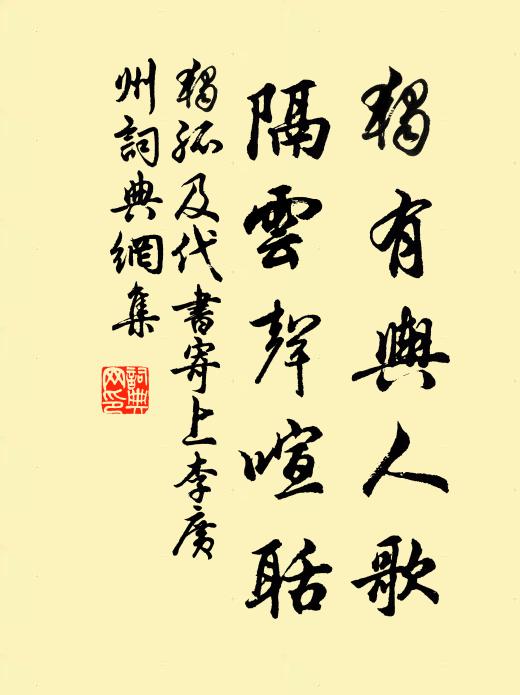 獨有輿人歌
隔雲聲喧聒
獨孤及代書寄上李廣
州詞典網集
詞典
网印